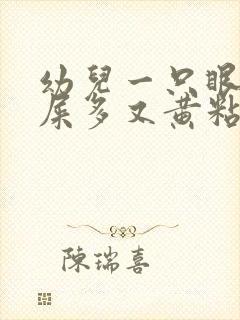 幼兒一只眼
屎多又黃粘
陳瑞喜